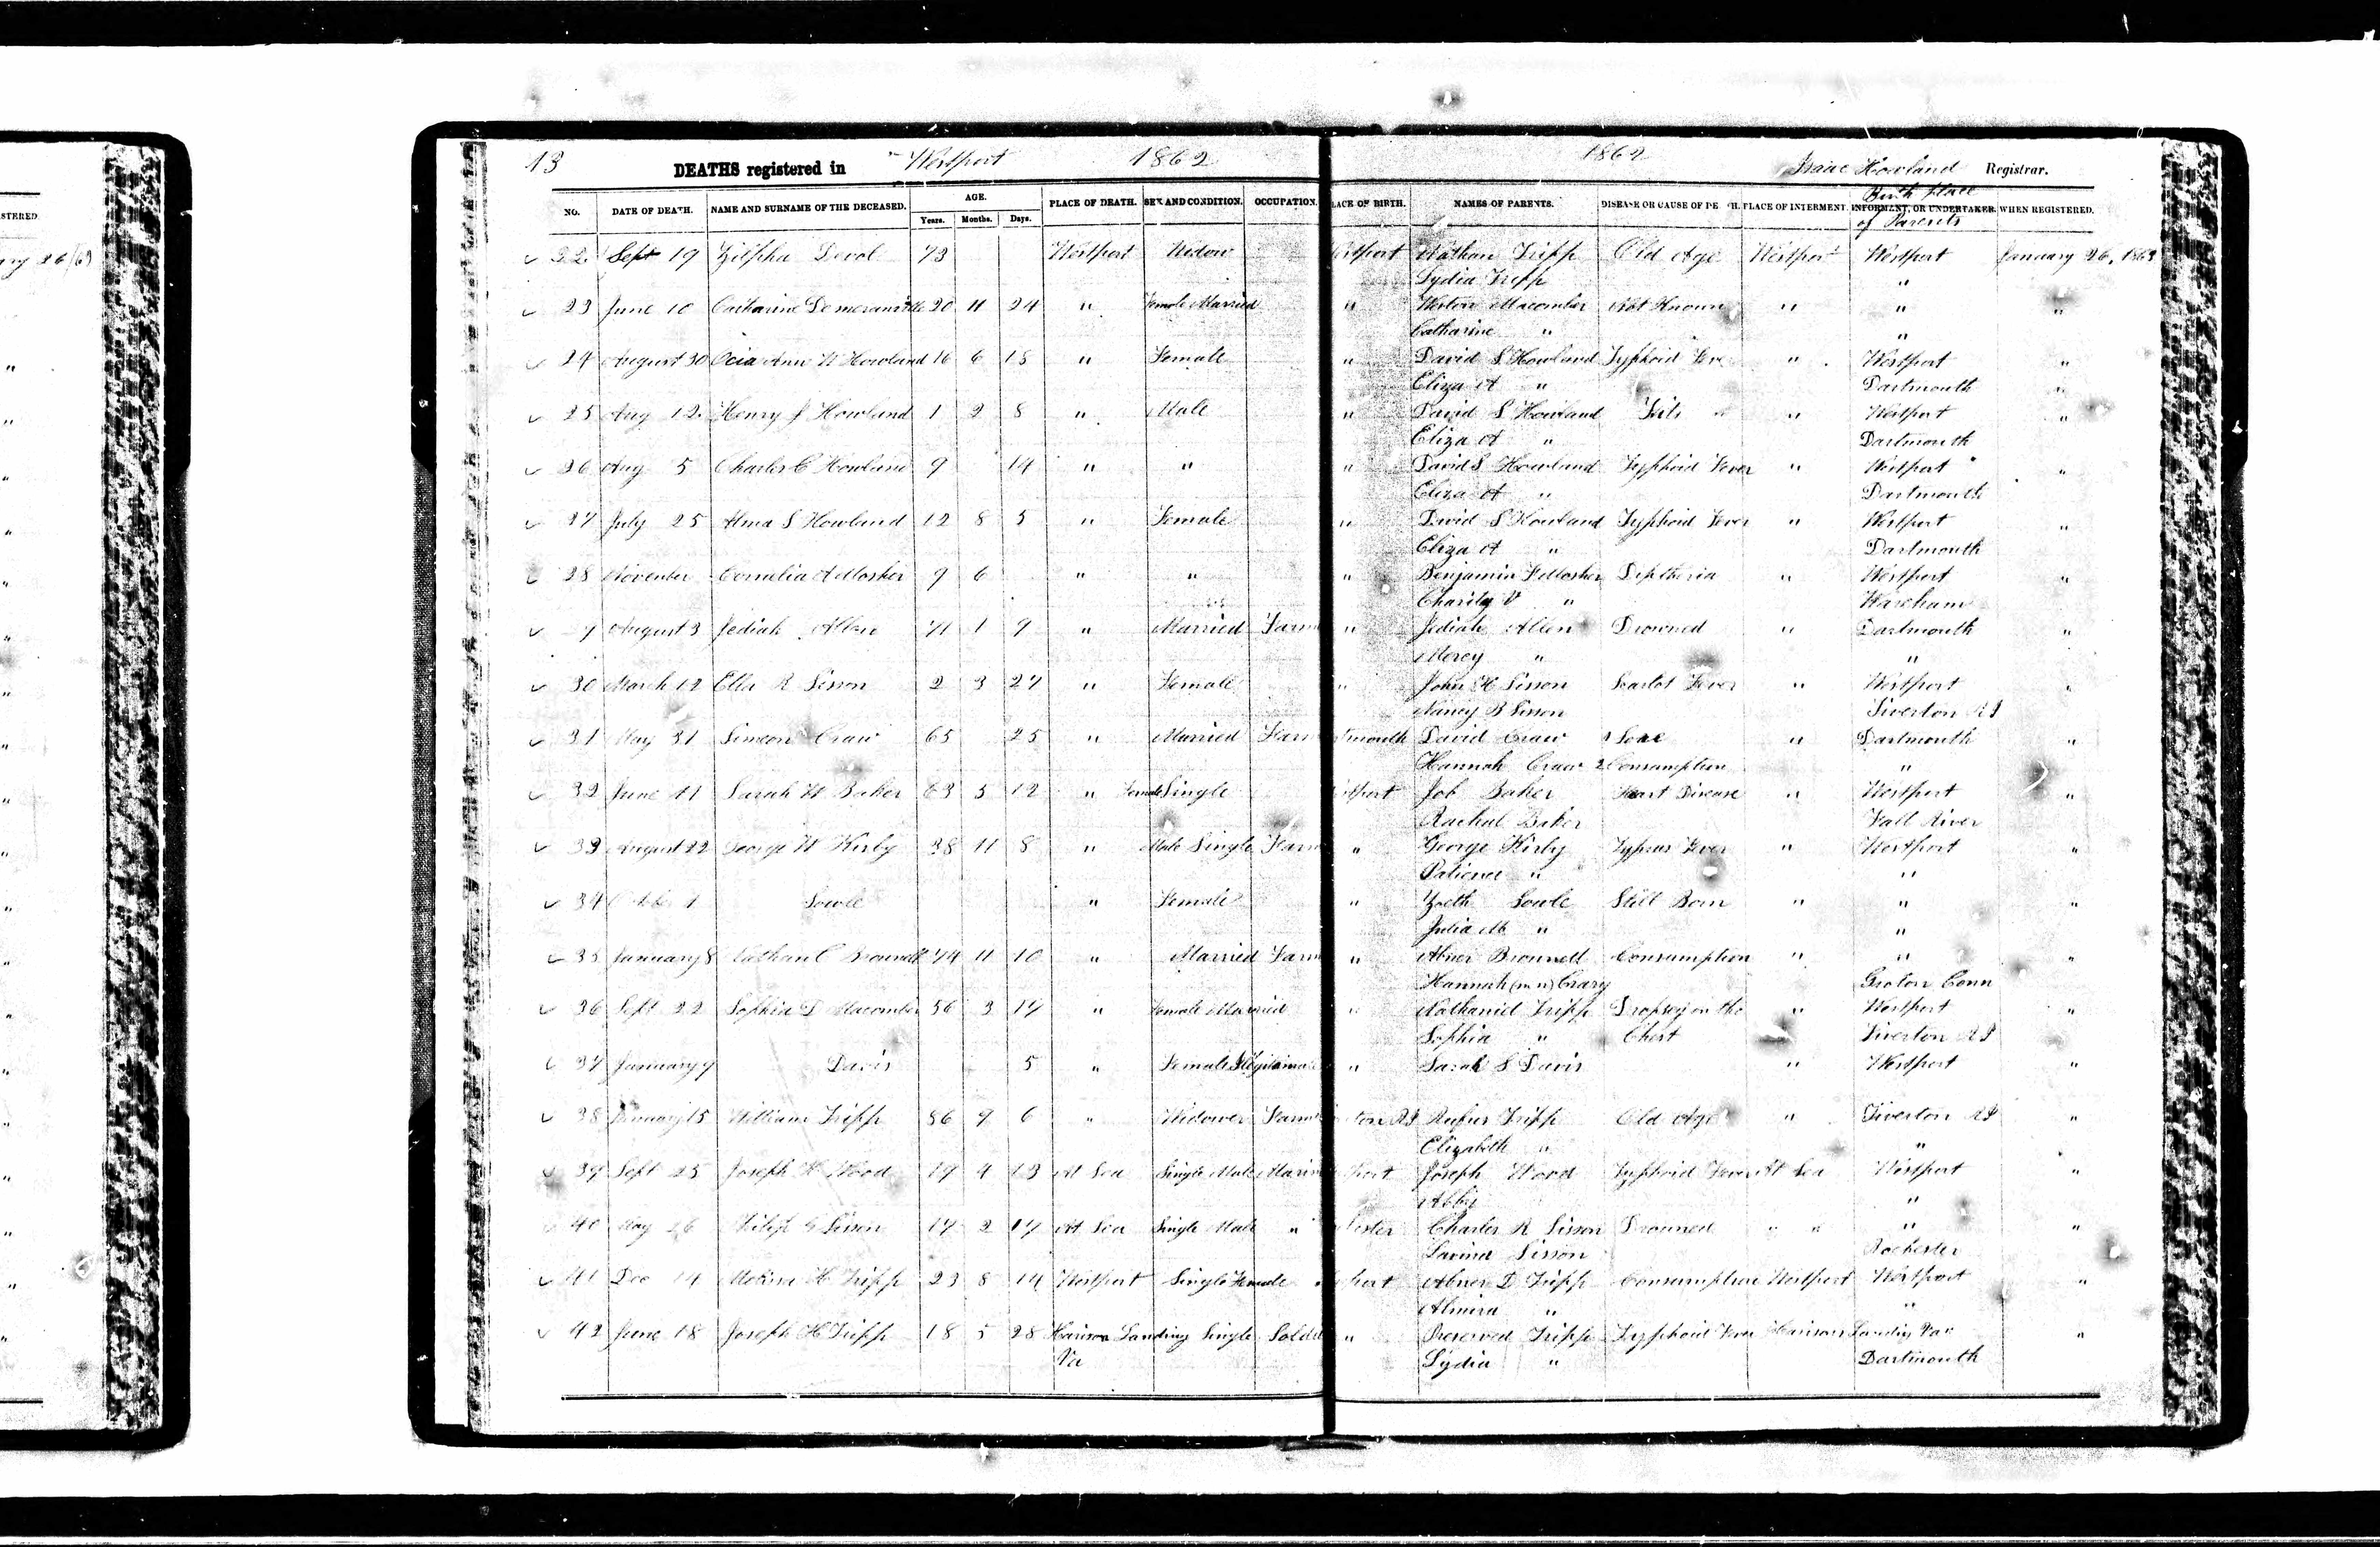 STERED.
13 DEATHS registered in Westport 1862 1862 Isaac Howland Registrar.
Birth place
NO. DATE OF DEATH. NAME AND SURNAME OF THE DECEASED. AGE. PLACE OF DEATH. SEX AND CONDITION. OCCUPATION. LACE OF BIRTH. NAMES OF PARENTS. DISEASE OR CAUSE OF DE H. PLACE OF INTERMENT. INFORMANT, OR UNDERTAKER. WHEN REGISTERED.
Years. Months. Days.
of Parents
22 Sept 19 Zilpha Devol 73 Westport Widow estport Nathan Tripp Old Age Westport Westport January 26, 1863
Lydia Tripp "
23 June 10 Catharine Demeranville 20 11 24 " Female Married " Weston Macomber Not Known " " "
Catharine " "
24 August 30 Ann W Howland 16 6 18 " Female " David S Howland Typhoid Feve " Westport "
Eliza A " Dartmouth "
25 Aug 12 Henry J Howland 1 2 8 " Male " David S Howland Fits " Westport "
Eliza A " Dartmouth
26 Aug 5 Charles C Howland 9 14 " " " David S Howland Typhoid Fever " Westport "
Eliza A " Dartmouth
27 July 25 Alma S Howland 12 8 5 " Female " David S Howland Typhoid Fever " Westport "
Eliza A " Dartmouth
28 November Cornelia A Mosher 9 6 " " " Benjamin F Mosher Diptheria " Westport "
Charity V " Wareham
29 August 3 Jediah Allen 71 1 9 " Married Farm " Jediah Allen Drowned " Dartmouth "
Mercy " "
30 March 12 Ella R Sisson 2 3 27 " Female " John H Sisson Scarlot Fever " Westport "
Nancy B Sisson Tiverton RI
31 May 31 Simeon Craw 65 25 " Married Farm tmouth David Craw 1 Sore " Dartmouth "
Hannah Craw 2 Consumption "
32 June 11 Sarah W Baker 63 5 12 " Female Single stport Job Baker Heart Disease " Westport "
Rachel Baker Fall River
33 August 22 George W Kirby 38 11 8 " Male Single Farm " George Kirby Typhus Fever " Westport "
Patience " "
34 Sowle " Female " Zoeth Sowle Still Born " " "
Julia M " "
35 January 8 Nathan C Brownell 74 11 10 " Married Farm " Abner Brownell Consumption " " "
Hannah (m n) Crary Groton Conn
36 Sept 22 Sophia D Macomber 56 3 17 " Female Married " Nathaniel Tripp Dropsey on the " Westport "
Sophia " Chest Tiverton RI
37 January 9 Davis 5 " Female Illigitimate " Sarah S Davis " Westport "
38 January 15 William Tripp 86 9 6 " Widower Farme ton RI Rufus Tripp Old Age " Tiverton RI "
Elizabeth " "
39 Sept 25 Joseph H Wood 19 4 13 At Sea Single Male Marin port Joseph Wood Typhoid Fever At Sea Westport "
Abby "
40 May 26 Philip G Sisson 17 2 17 At Sea Single Male " hester Charles R Sisson Drowned " " " "
Lavina Sisson Rochester
41 Dec 14 H Tripp 23 8 14 Westport Single Female port Abner D Tripp Consumption Westport Westport "
Almira " "
42 June 18 Joseph H Tripp 18 5 28 Harison Landing Single Soldi " Preserved Tripp Typhoid Fever Harisons Landing "
Va Lydia " Dartmouth